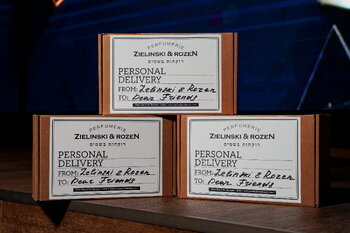 PERFUMERIE
ZIELINSKI & ROZEN
רוקחות בשמים
PERSONAL
DELIVERY
FROM: Zelinski & Rozen
TO: Dear Friends
PERFUMERIE
ZIELINSKI & ROZEN
רוקחות בשמים
PERSONAL
DELIVERY
FROM: Zelinski & Rozen
TO: Dear Friends
PERFUMERIE
ZIELINSKI & ROZEN
רוקחות בשמים
PERSONAL
DELIVERY
FROM: Zelinski & Rozen
TO: Dear Friends